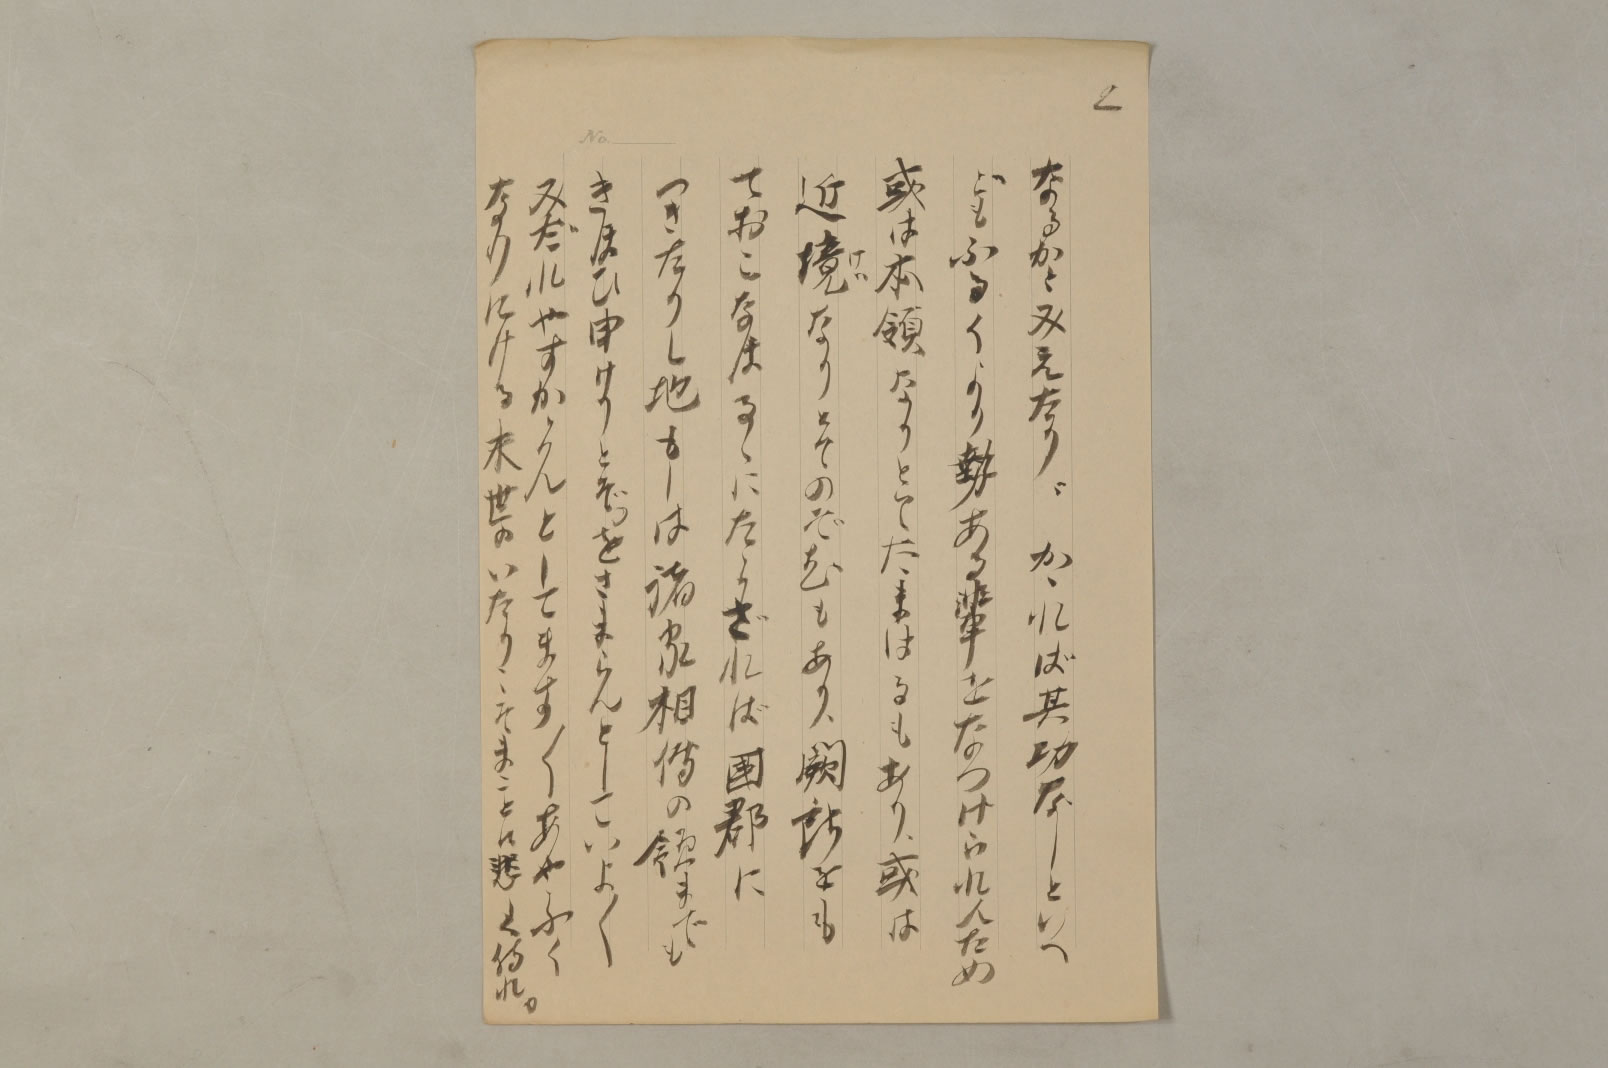 2
No.
なるかとみえたり。かゝれば其功なしといへ
どもふるくより勢ある輩をなつけられんため
或は本領なりとてたまはるもあり、或は
近境なりとてのぞむもあり、闕所をも
けい
ておこなはるゝにたらざれば国郡に
つきたりし地もしは諸家相傳の領までも
きほひ申けりとぞをさまらんとしていよ〱
みだれやすからんとしてます〱あやふく
なりにける末世のいたりこそまことに悲く侍れ。